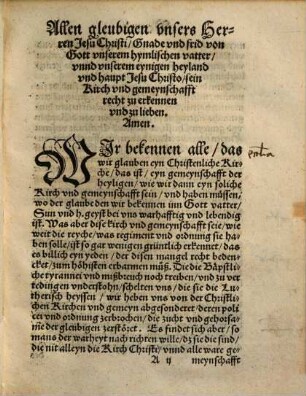 Allen gleubigen vnsers Her-
ren Jesu Christi/ Gnade vnd frid von
Gott vnserem hymlischen vatter/
vnnd vnserem eynigen heyland
vnd haupt Jesu Christo/ sein
Kirch vnd gemeynschafft
recht zu erkennen
vnd zu lieben.
Amen.
WIr bekennen alle/ das
wir glauben eyn Christenliche Kir-
che/ das ist/ eyn gemeynschafft der
heyligen/ wie wir dann eyn soliche
Kirch vnd gemeynschafft sein/ vnd haben müssen/
wo der glaube den wir bekennen inn Gott vatter/
Sun vnd h. geyst bei vns warhafftig vnd lebendig
ist. Was aber dise Kirch vnd gemeynschafft seie/ wie
weit die reyche/ was regiment vnd ordnung sie ha-
ben solle/ ist so gar wenigen grüntlich erkennet/ das
es billich eyn yeden/ der disen mangel recht beden-
cket/ zum höhisten erbarmen můß. Die die Bäpstli-
che tyrannei vnd mißbreuch noch treiben/ vnd zu ver
tedingen vnderstohn/ schelten vns/ die sie die Lu-
therisch heyssen/ wir heben vns von der Christli-
chen Kirchen vnd gemeyn abgesonderet/ deren poli-
cei vnd ordnung zerbrochen/ die zucht vnd gehorsa-
me der gleubigen zerstöret. Es findet sich aber/ so
mans der warheyt nach richten wille/ dz sie die sind/
die nit alleyn die Kirch Christi/ vnnd alle ware ge-
A ij meynschafft